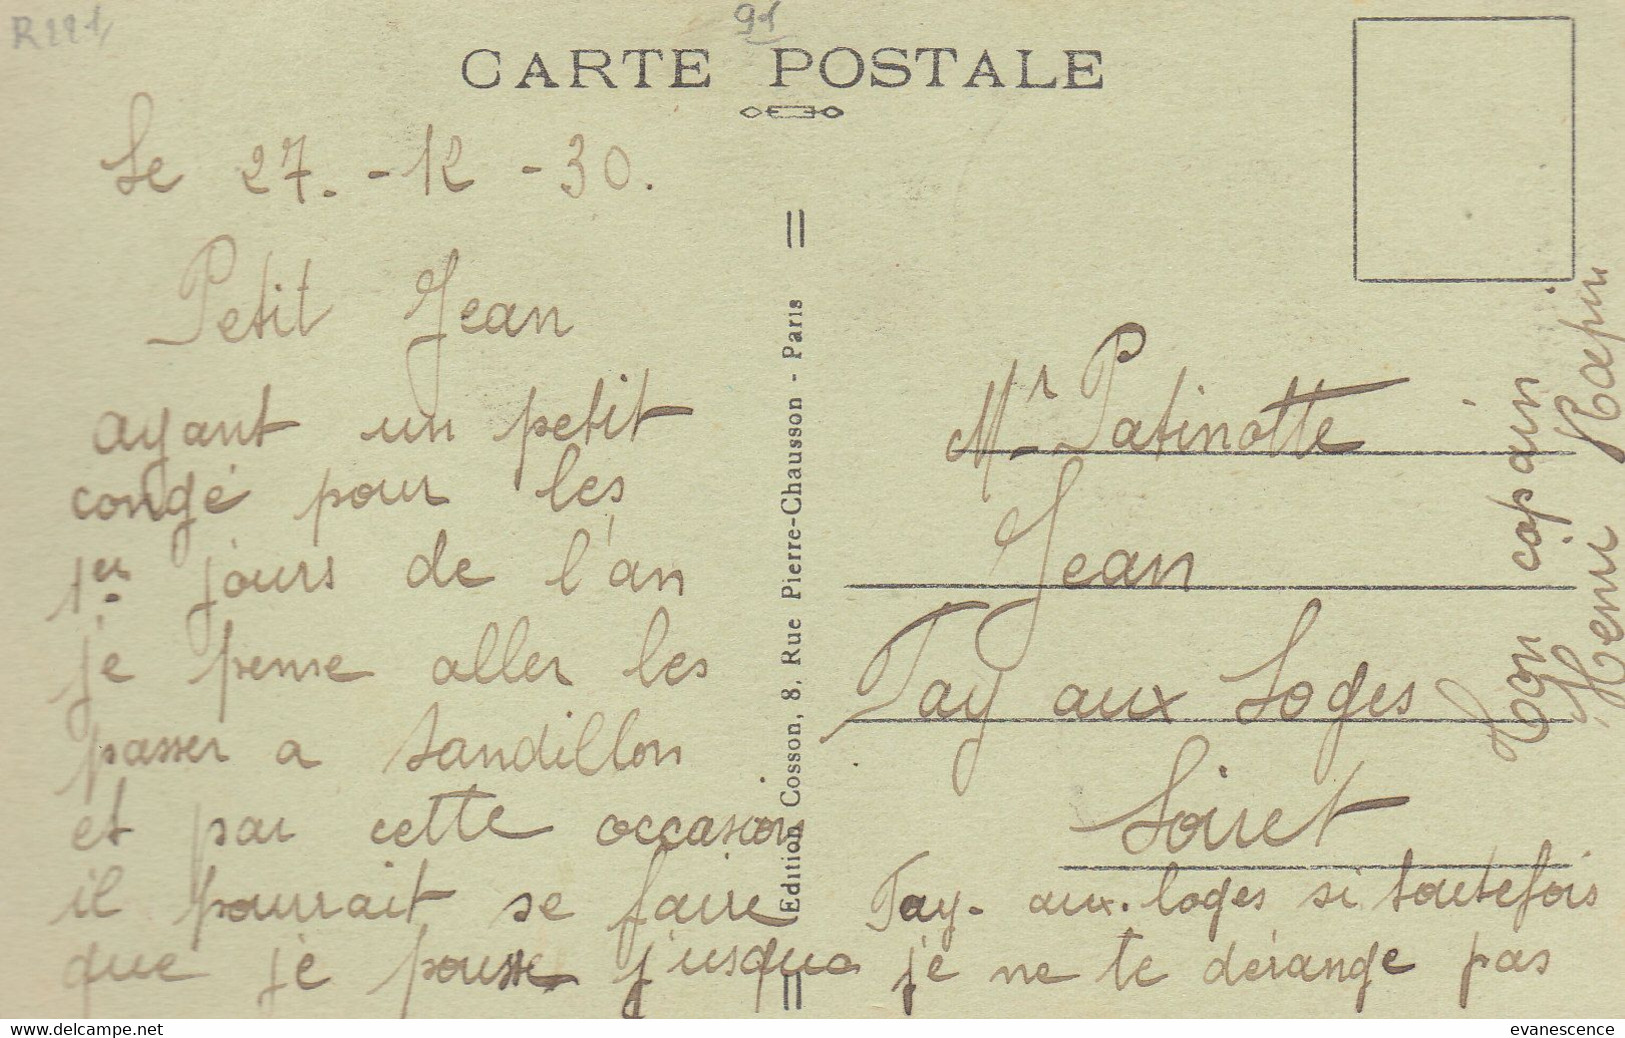 91
CARTE POSTALE
Le 27. - 12 - 30.
Petit Jean
ayant un petit
congé pour les
1er jours de l'an
je pense aller les
passer a Sandillon
et par cette occasion
il pourrait se faire
que je pousse jusqua
Fay. aux. loges si toutefois
je ne te dérange pas
Edition Cosson, 8, Rue Pierre-Chausson - Paris
Mr Patinotte
Jean
Fay aux Loges
Loiret
Ton copain
Henri
www.delcampe.net
evanescence